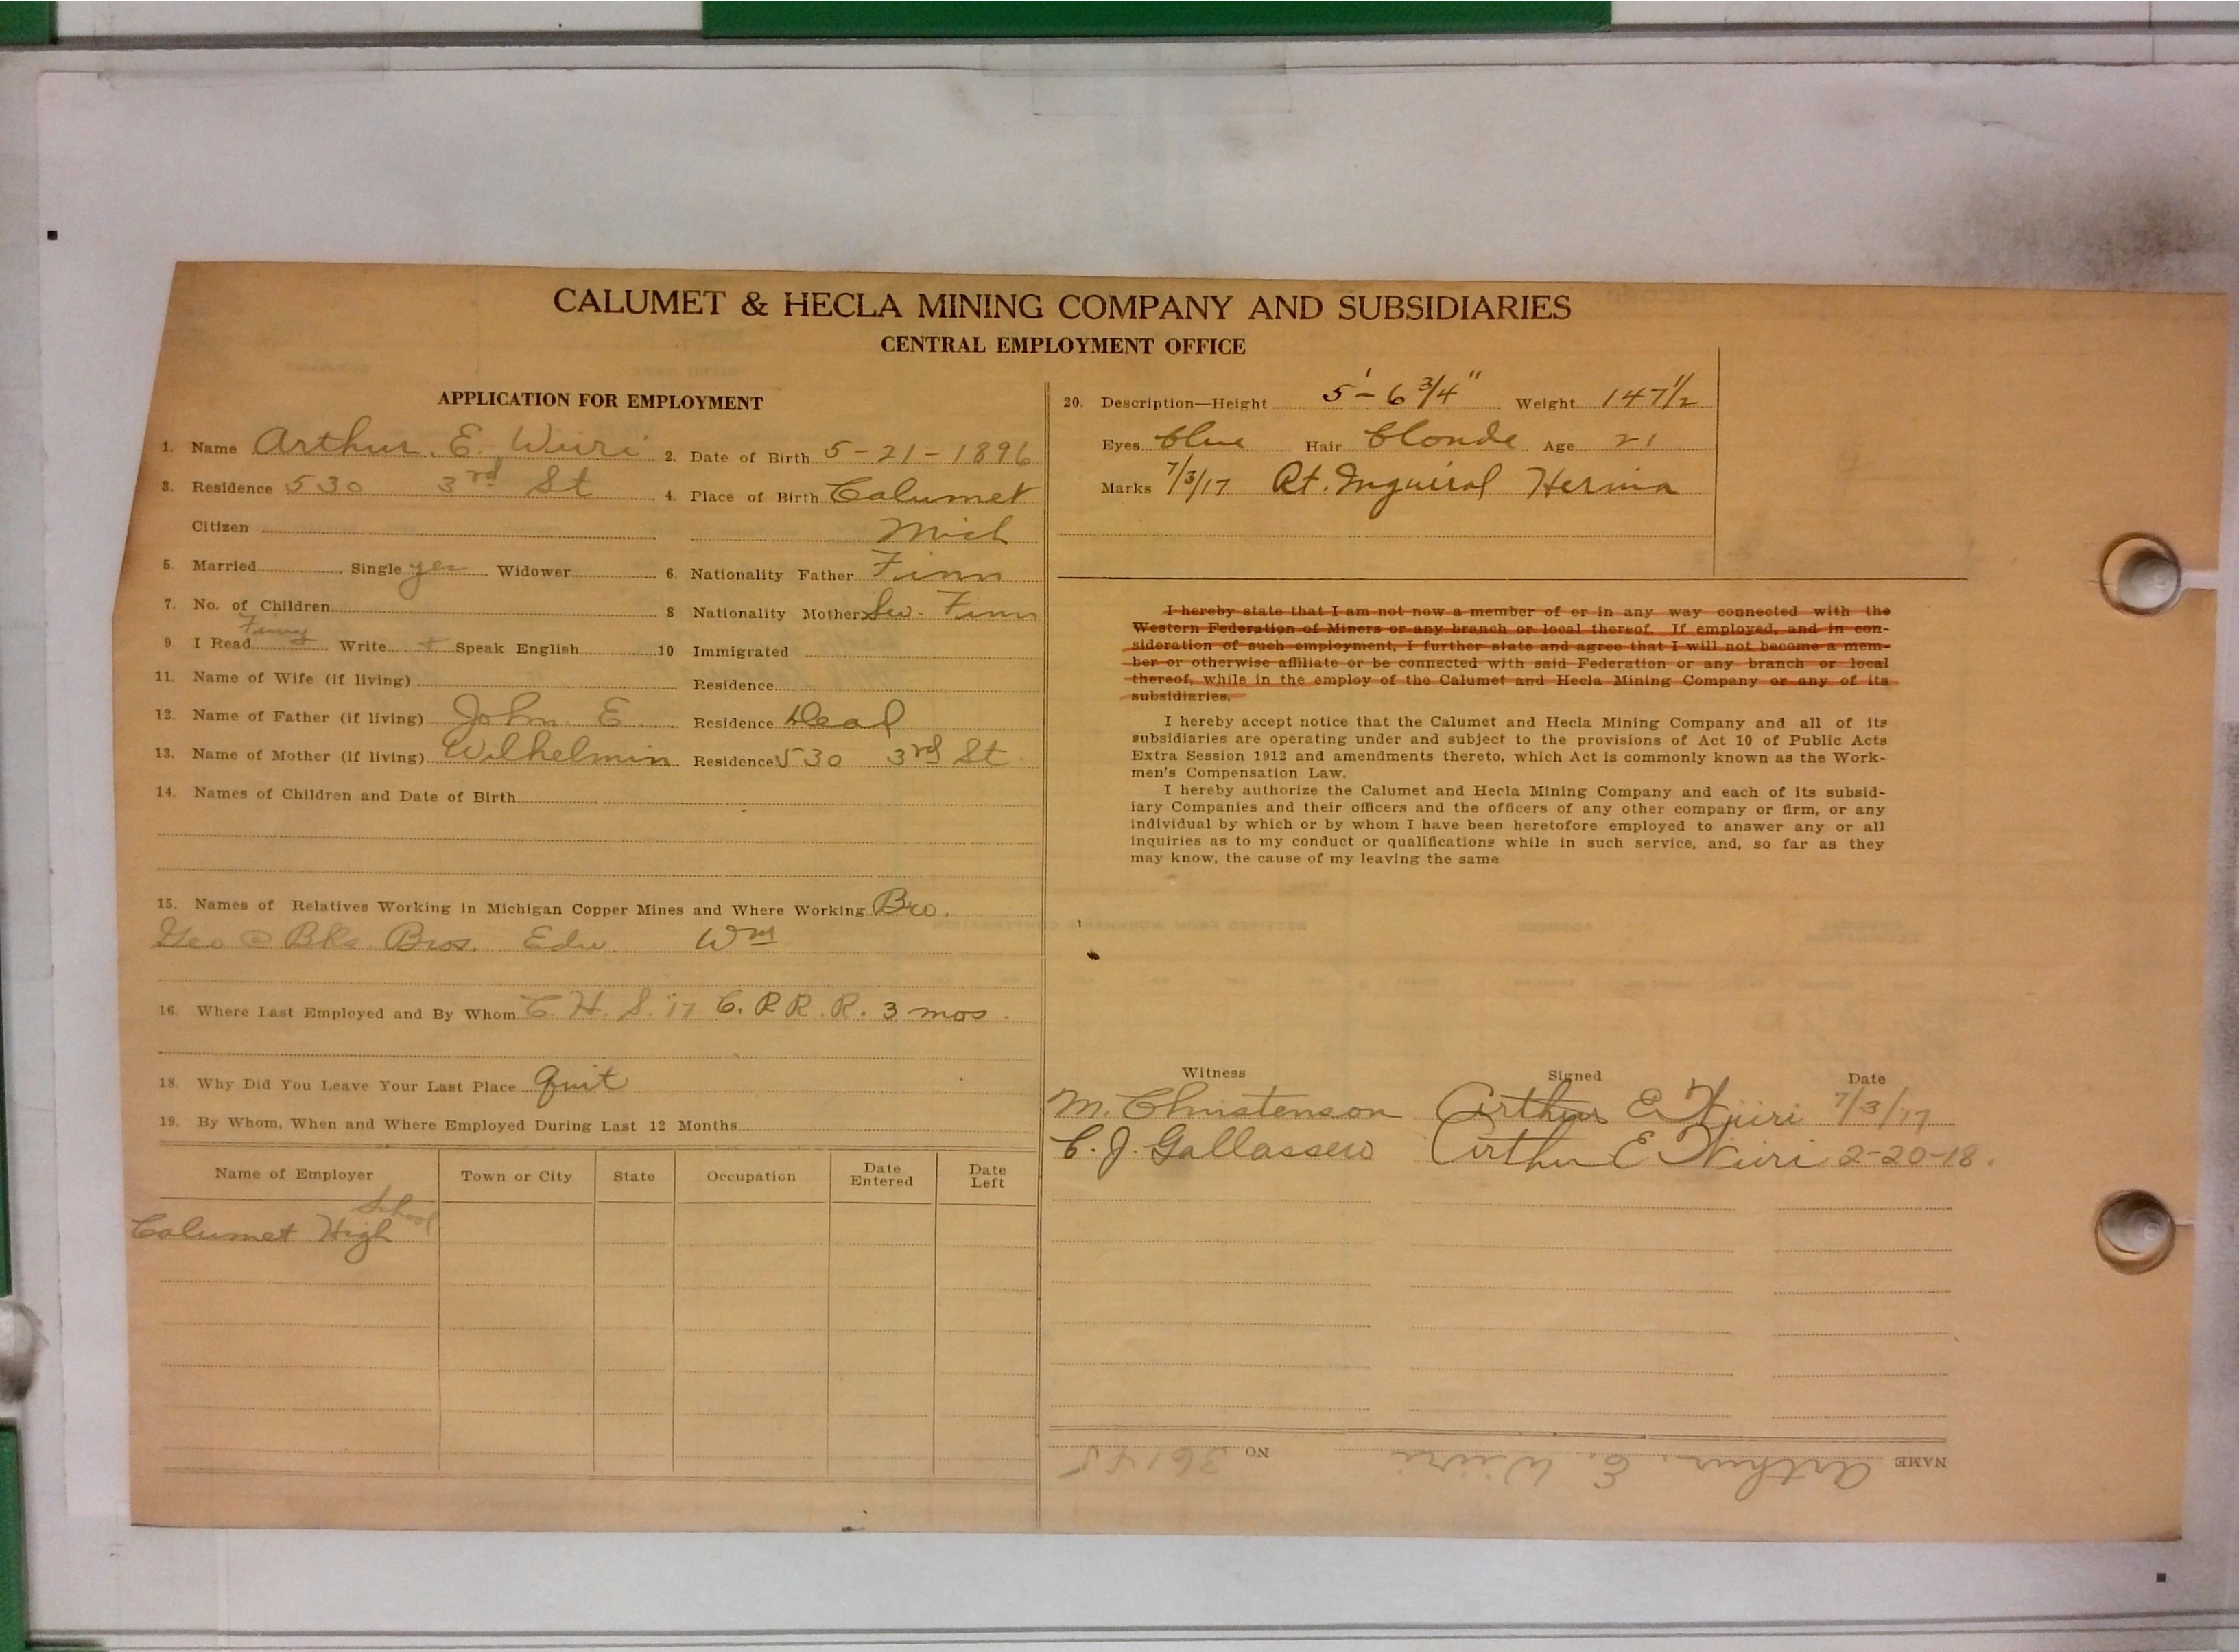 CALUMET & HECLA MINING COMPANY AND SUBSIDIARIES
CENTRAL EMPLOYMENT OFFICE
APPLICATION FOR EMPLOYMENT
1. Name Arthur. E. Wiiri 2. Date of Birth 5-21-1896
3. Residence 530 3rd St 4. Place of Birth Calumet
Citizen Mich
5. Married Single yes Widower 6. Nationality Father Finn
7. No. of Children 8 Nationality Mother Sw. Finn
9 I Read Write + Speak English 10 Immigrated
11. Name of Wife (if living) Residence
12. Name of Father (if living) John E Residence Dead
13. Name of Mother (if living) Wilhelmin Residence 530 3rd St.
14. Names of Children and Date of Birth
15. Names of Relatives Working in Michigan Copper Mines and Where Working Bro.
Geo @ Bks Bros. Edw. Wm
16. Where Last Employed and By Whom C. H. S. 17 C. R R. R. 3 mos.
18. Why Did You Leave Your Last Place quit
19. By Whom, When and Where Employed During Last 12 Months
Name of Employer Town or City State Occupation Date Entered Date Left
Calumet High School
20. Description—Height 5'-6 3/4" Weight 147 1/2
Eyes blue Hair blonde Age 21
Marks 7/3/17 Rt. Inguiral Hernia
I hereby state that I am not now a member of or in any way connected with the
Western Federation of Miners or any branch or local thereof. If employed, and in con-
sideration of such employment, I further state and agree that I will not become a mem-
ber or otherwise affiliate or be connected with said Federation or any branch or local
thereof, while in the employ of the Calumet and Hecla Mining Company or any of its
subsidiaries.
I hereby accept notice that the Calumet and Hecla Mining Company and all of its
subsidiaries are operating under and subject to the provisions of Act 10 of Public Acts
Extra Session 1912 and amendments thereto, which Act is commonly known as the Work-
men's Compensation Law.
I hereby authorize the Calumet and Hecla Mining Company and each of its subsid-
iary Companies and their officers and the officers of any other company or firm, or any
individual by which or by whom I have been heretofore employed to answer any or all
inquiries as to my conduct or qualifications while in such service, and, so far as they
may know, the cause of my leaving the same
Witness Signed Date
M. Christenson Arthur E Wiiri 7/3/17
C. J. Gallassero Arthur E Wiiri 2-20-18.
NAME Arthur. E. Wiiri NO 36145